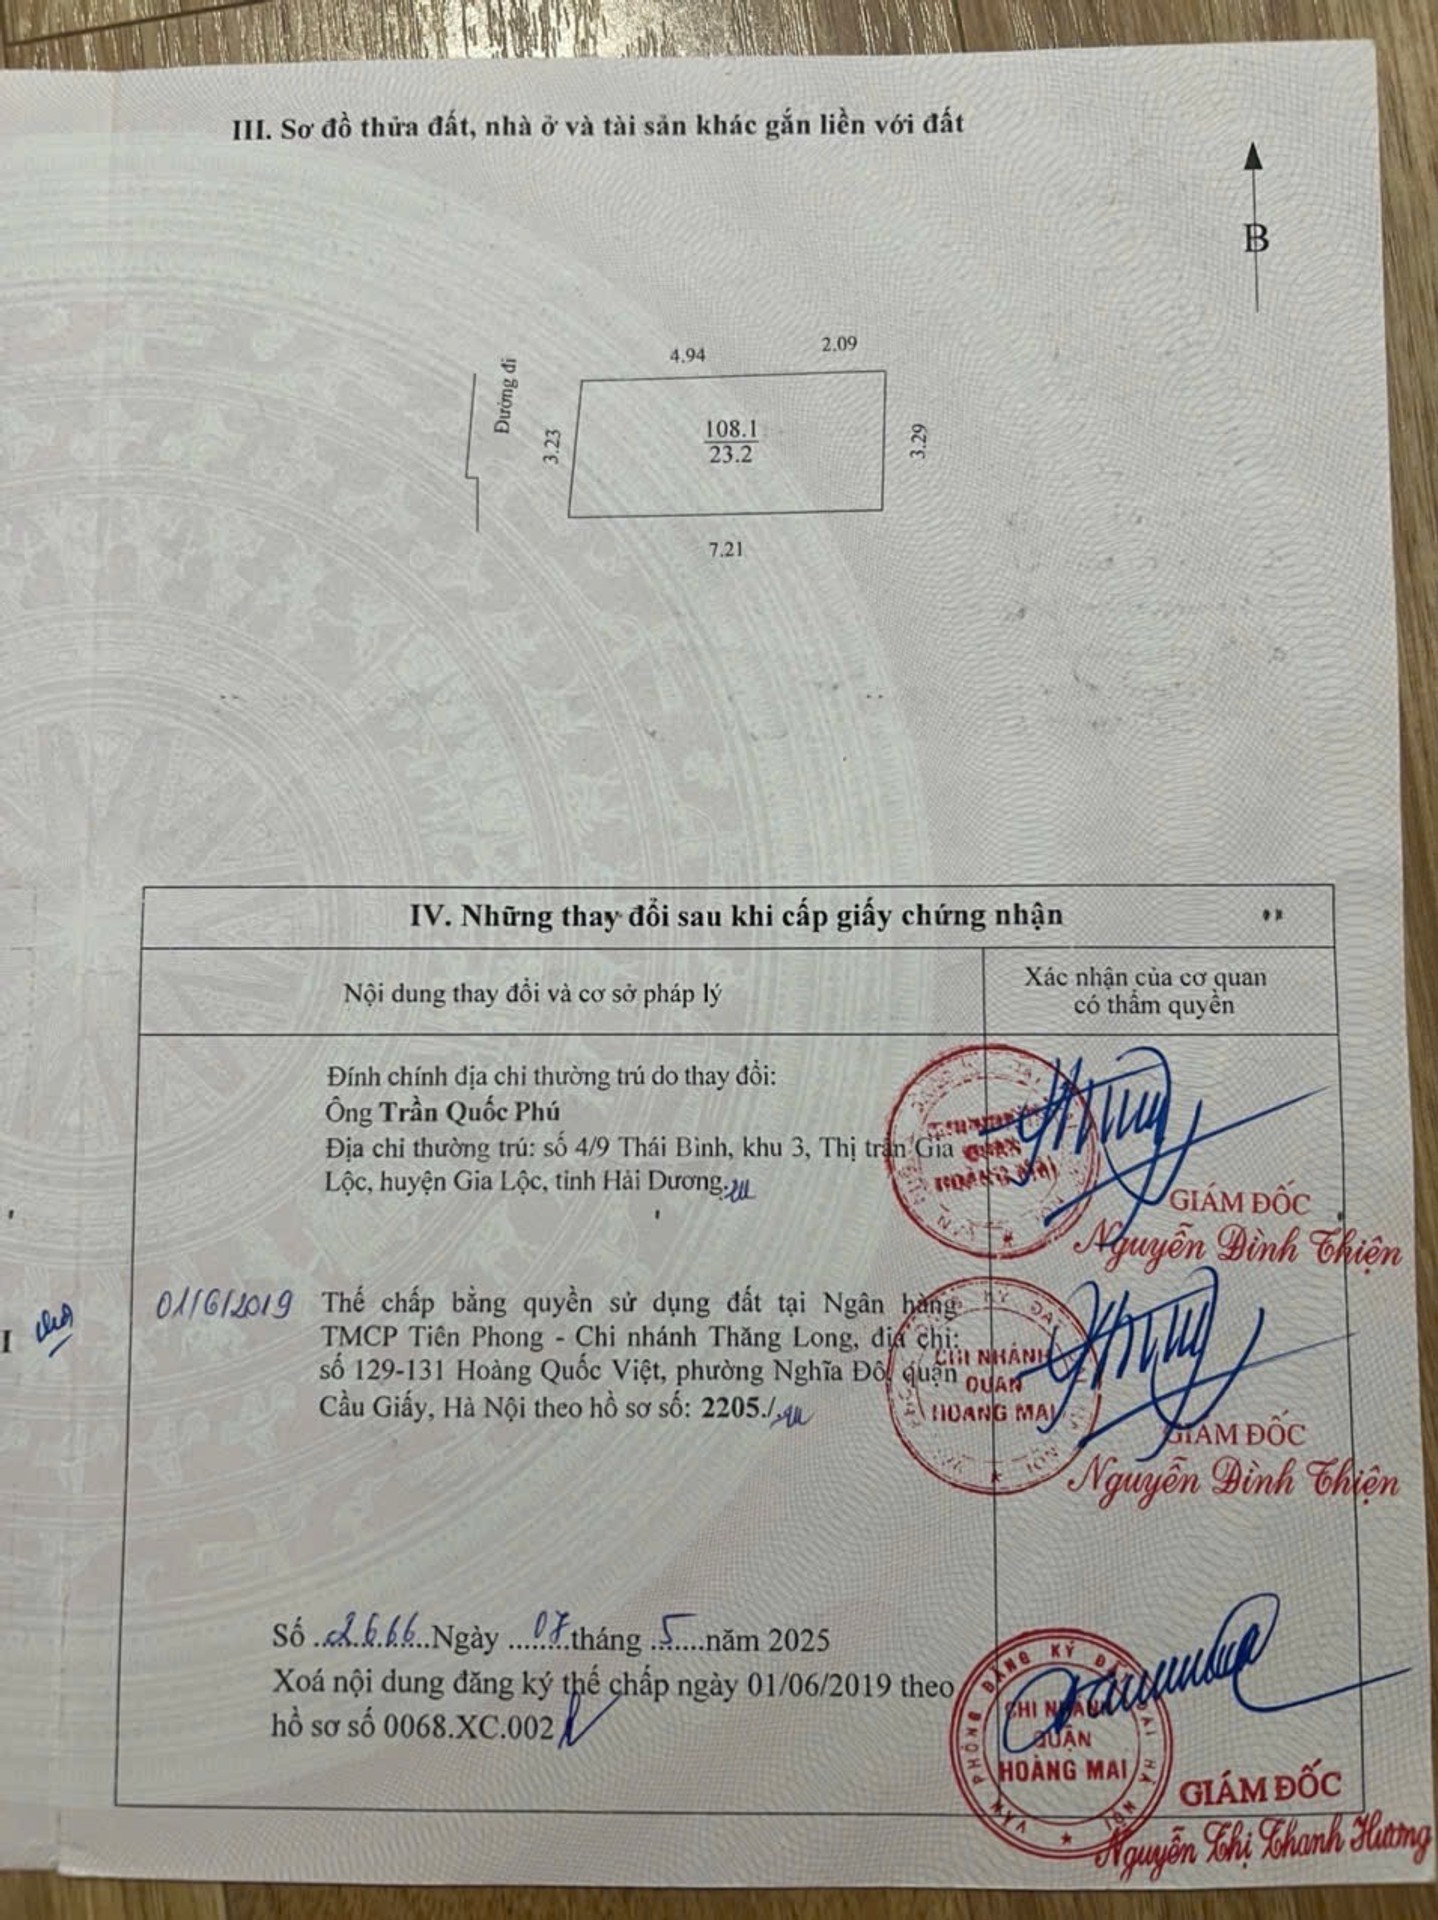 III. Sơ đồ thửa đất, nhà ở và tài sản khác gắn liền với đất
B
4.94
2.09
Đường đi
3.23
108.1
23.2
3.29
7.21
IV. Những thay đổi sau khi cấp giấy chứng nhận
Nội dung thay đổi và cơ sở pháp lý
Xác nhận của cơ quan
có thẩm quyền
Đính chính địa chỉ thường trú do thay đổi:
Ông Trần Quốc Phú
Địa chỉ thường trú: số 4/9 Thái Bình, khu 3, Thị trấn Gia
Lộc, huyện Gia Lộc, tỉnh Hải Dương.
QUẬN
HOÀNG MAI
GIÁM ĐỐC
Nguyễn Đình Thiện
I
01/6/2019 Thế chấp bằng quyền sử dụng đất tại Ngân hàng
TMCP Tiên Phong - Chi nhánh Thăng Long, địa chỉ:
số 129-131 Hoàng Quốc Việt, phường Nghĩa Đô, quận
Cầu Giấy, Hà Nội theo hồ sơ số: 2205./.
CHI NHÁNH
QUẬN
HOÀNG MAI
GIÁM ĐỐC
Nguyễn Đình Thiện
Số ..2666..Ngày ...07..tháng ..5....năm 2025
Xoá nội dung đăng ký thế chấp ngày 01/06/2019 theo
hồ sơ số 0068.XC.002
VĂN PHÒNG ĐĂNG KÝ ĐẤT ĐAI HÀ NỘI
CHI NHÁNH
QUẬN
HOÀNG MAI
GIÁM ĐỐC
Nguyễn Thị Thanh Hương